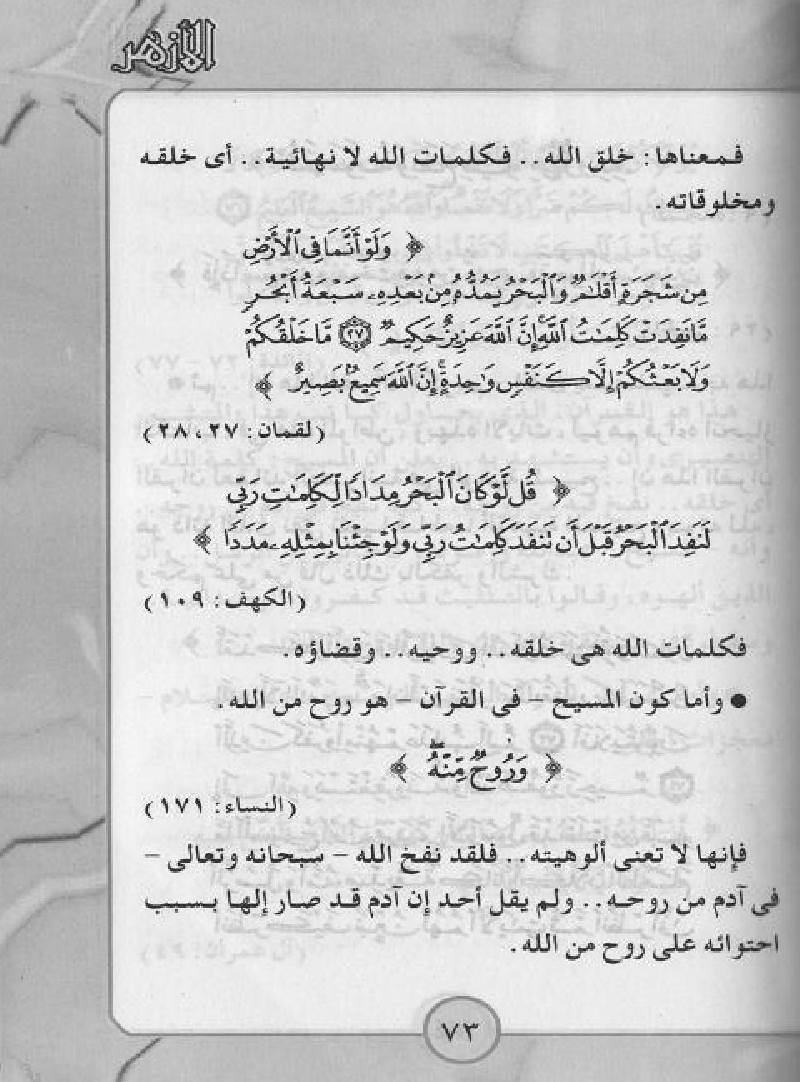 الأزهر
فمعناها: خلق الله.. فكلمات الله لا نهائية.. أى خلقه
ومخلوقاته.
﴿ وَلَوْ أَنَّمَا فِى ٱلْأَرْضِ
مِن شَجَرَةٍ أَقْلَٰمٌ وَٱلْبَحْرُ يَمُدُّهُۥ مِنۢ بَعْدِهِۦ سَبْعَةُ أَبْحُرٍ
مَّا نَفِدَتْ كَلِمَٰتُ ٱللَّهِ إِنَّ ٱللَّهَ عَزِيزٌ حَكِيمٌ ۝٢٧ مَّا خَلْقُكُمْ
وَلَا بَعْثُكُمْ إِلَّا كَنَفْسٍ وَٰحِدَةٍ إِنَّ ٱللَّهَ سَمِيعٌۢ بَصِيرٌ ﴾
(لقمان: ٢٧، ٢٨)
﴿ قُل لَّوْ كَانَ ٱلْبَحْرُ مِدَادًا لِّكَلِمَٰتِ رَبِّى
لَنَفِدَ ٱلْبَحْرُ قَبْلَ أَن تَنفَدَ كَلِمَٰتُ رَبِّى وَلَوْ جِئْنَا بِمِثْلِهِۦ مَدَدًا ﴾
(الكهف: ١٠٩)
فكلمات الله هى خلقه.. ووحيه.. وقضاؤه.
● وأما كون المسيح - فى القرآن - هو روح من الله.
﴿ وَرُوحٌ مِّنْهُ ﴾
(النساء: ١٧١)
فإنها لا تعنى ألوهيته.. فلقد نفخ الله - سبحانه وتعالى -
فى آدم من روحه.. ولم يقل أحد إن آدم قد صار إلها بسبب
احتوائه على روح من الله.
٧٣